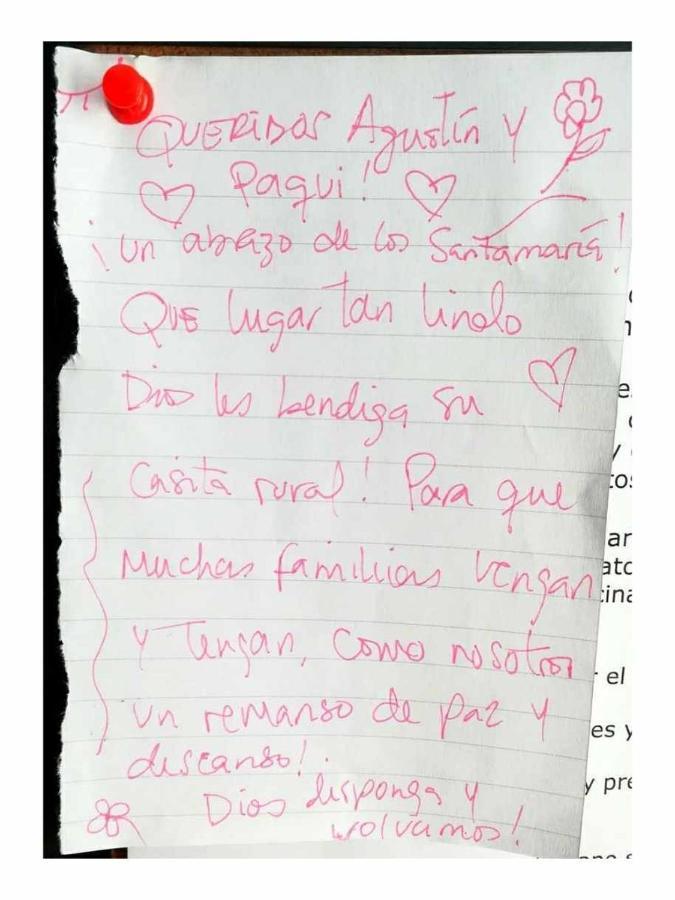 QUERIDOS Agustín y
Paqui!
¡un abrazo de los Santamaría!
Que lugar tan lindo
Dios les bendiga su
casita rural! Para que
muchas familias vengan
y tengan, como nosotros
un remanso de paz y
descanso!
Dios disponga y
volvamos!
e
y
to
ar
ato
cina
el
es y
y pre